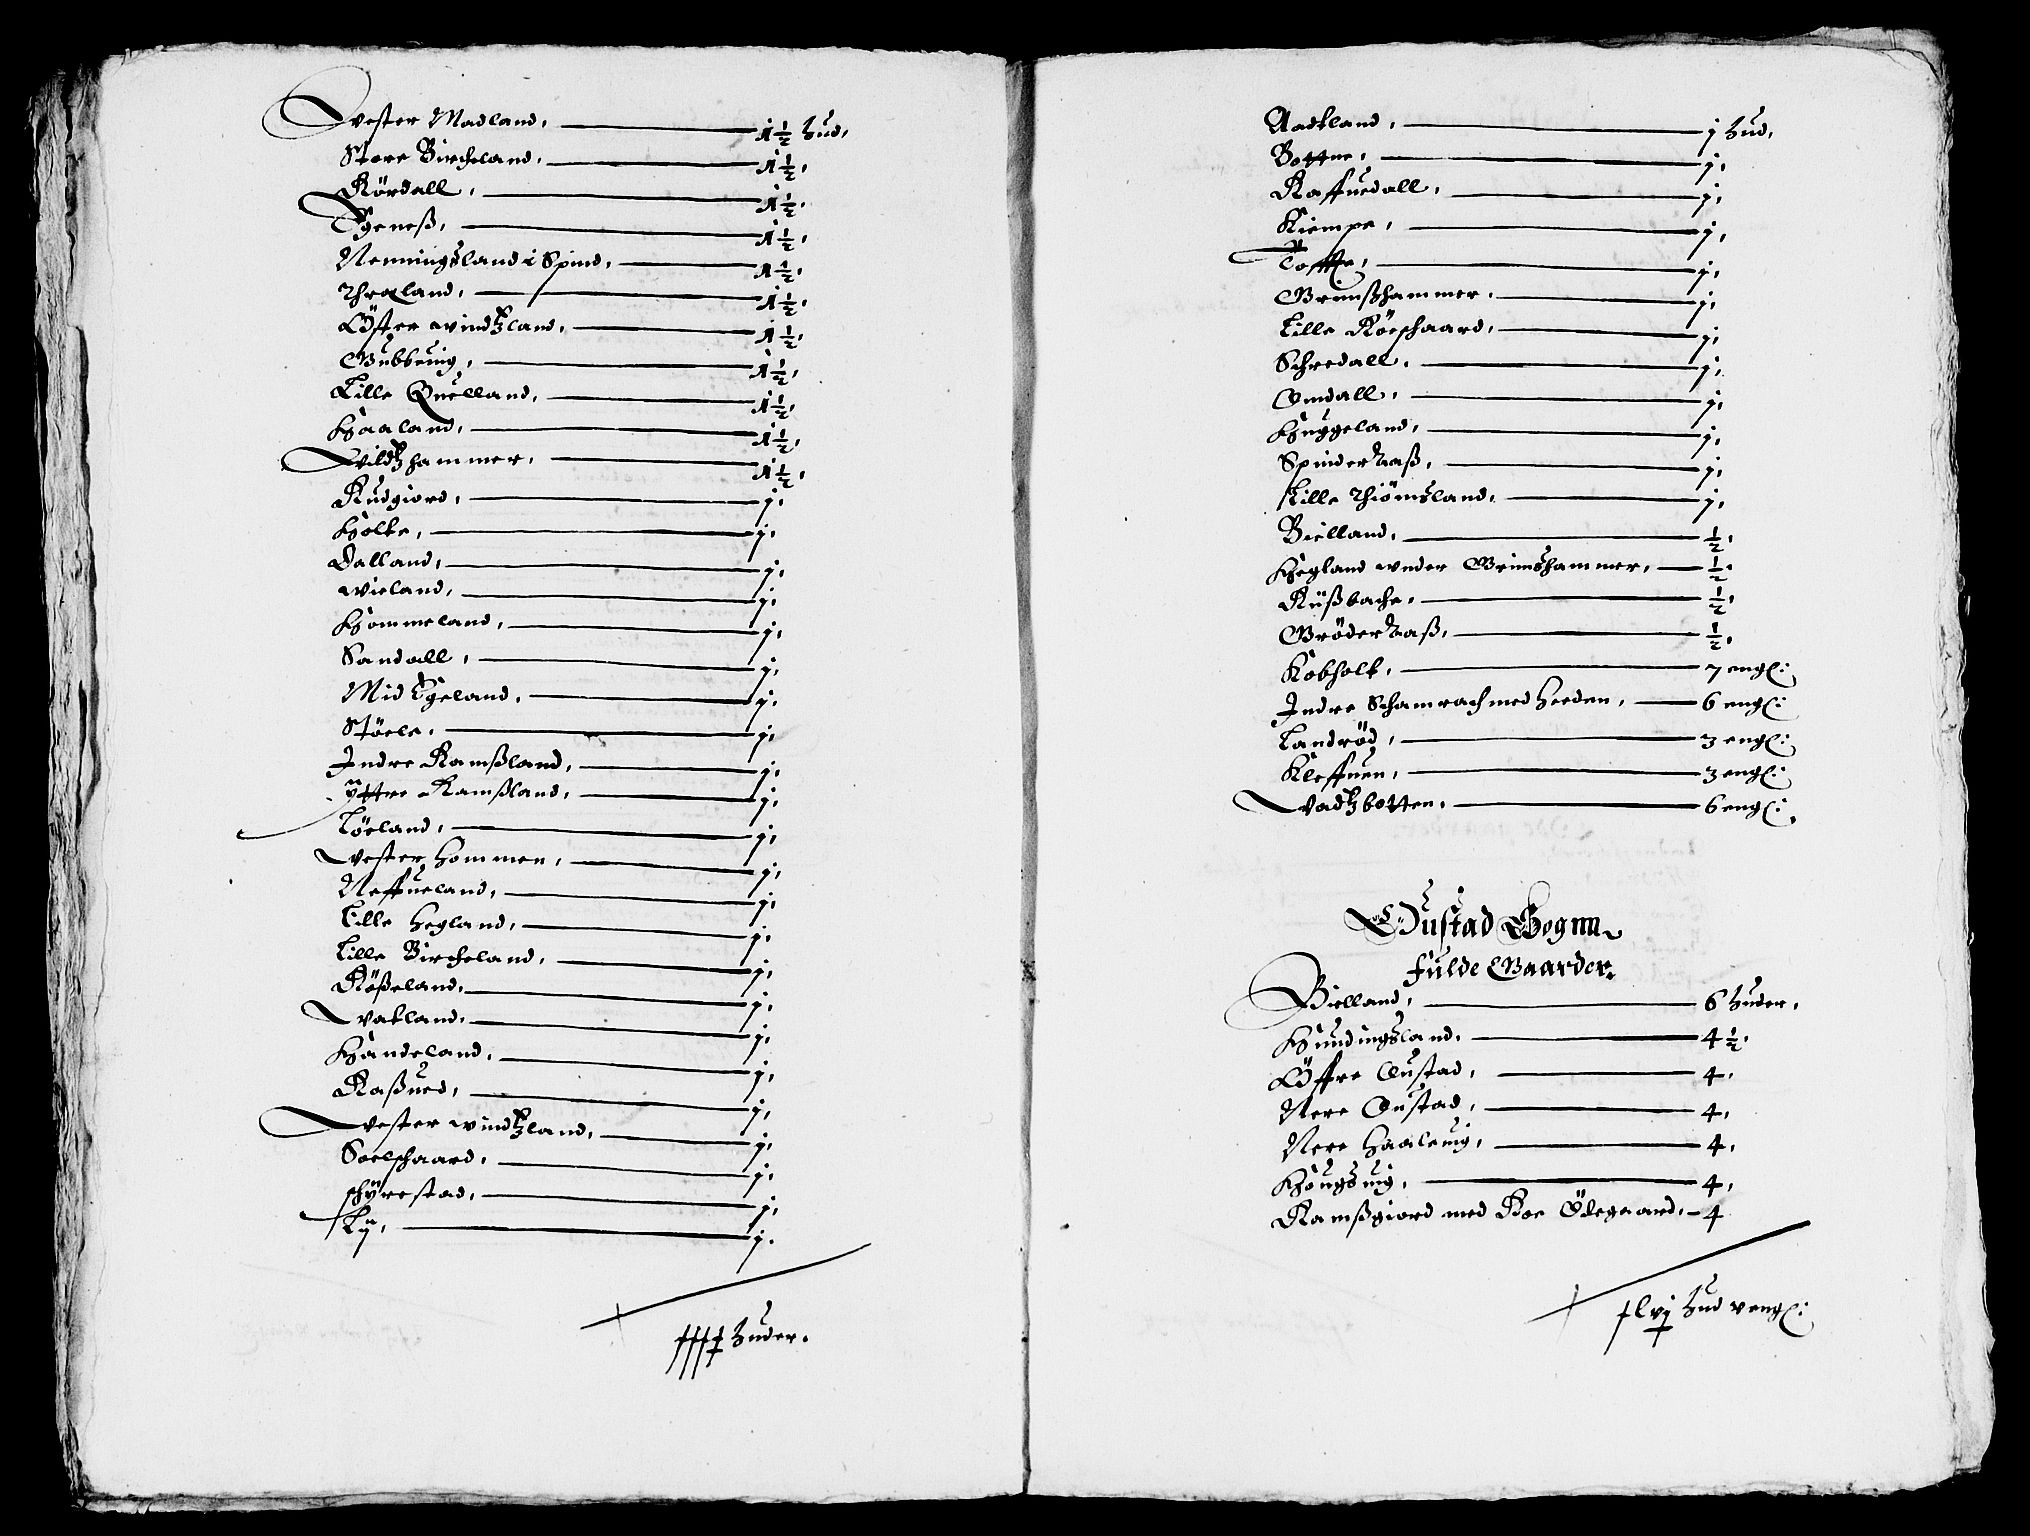 Vester Madland, 1½ hud,
Store Bircheland, 1½,
Rördall, 1½,
Egeneß, 1½,
Nenningsland i Spind, 1½,
Thraland, 1½,
Öster Windtzland, 1½,
Gubbeuig, 1½,
Lille Quelland, 1½,
Haaland, 1½,
Vildtzhammer, 1½,
Rudgiord, j,
Holte, j,
Dalland, j,
Wieland, j,
Hommeland, j,
Sandall, j,
Mid Egeland, j,
Stöele, j,
Indre Ramßland, j,
Ÿttre Ramßland, j,
Löeland, j,
Vester Hommen, j,
Neffueland, j,
Lille Hegland, j,
Lille Bircheland, j,
Rößeland, j,
Vatland, j,
Handeland, j,
Raßued, j,
Vester Windtzland, j,
Soelshaard, j,
Phÿrestad, j,
Lÿ, j.
huder.
Aadland, j hud,
Bottne, j,
Raffuedall, j,
Kiempe, j,
Toffte, j,
Grimßhammer, j,
Lille Röeshaard, j,
Schredall, j,
Omdall, j,
Huggeland, j,
Spinder Aaß, j,
Lille Thiömsland, j,
Bielland, ½,
Hegland under Grimshammer, ½,
Rüßbache, ½,
Gröder Aaß, ½,
Kobholt, 7 engl:
Indre Schamrach med Heeden, 6 engl:
Landröd, 3 engl:
Kleffuen, 3 engl:
Vadtzbotten, 6 engl:
Oustad Sognn
Fulde Gaarder
Bielland, 6 huder,
Hundingsland, 4½,
Öffre Oustad, 4,
Nere Oustad, 4,
Nere Haaleuig, 4,
Hougsuig, 4,
Ramßgiord med Roe Ödegaard, 4
hud v engl: